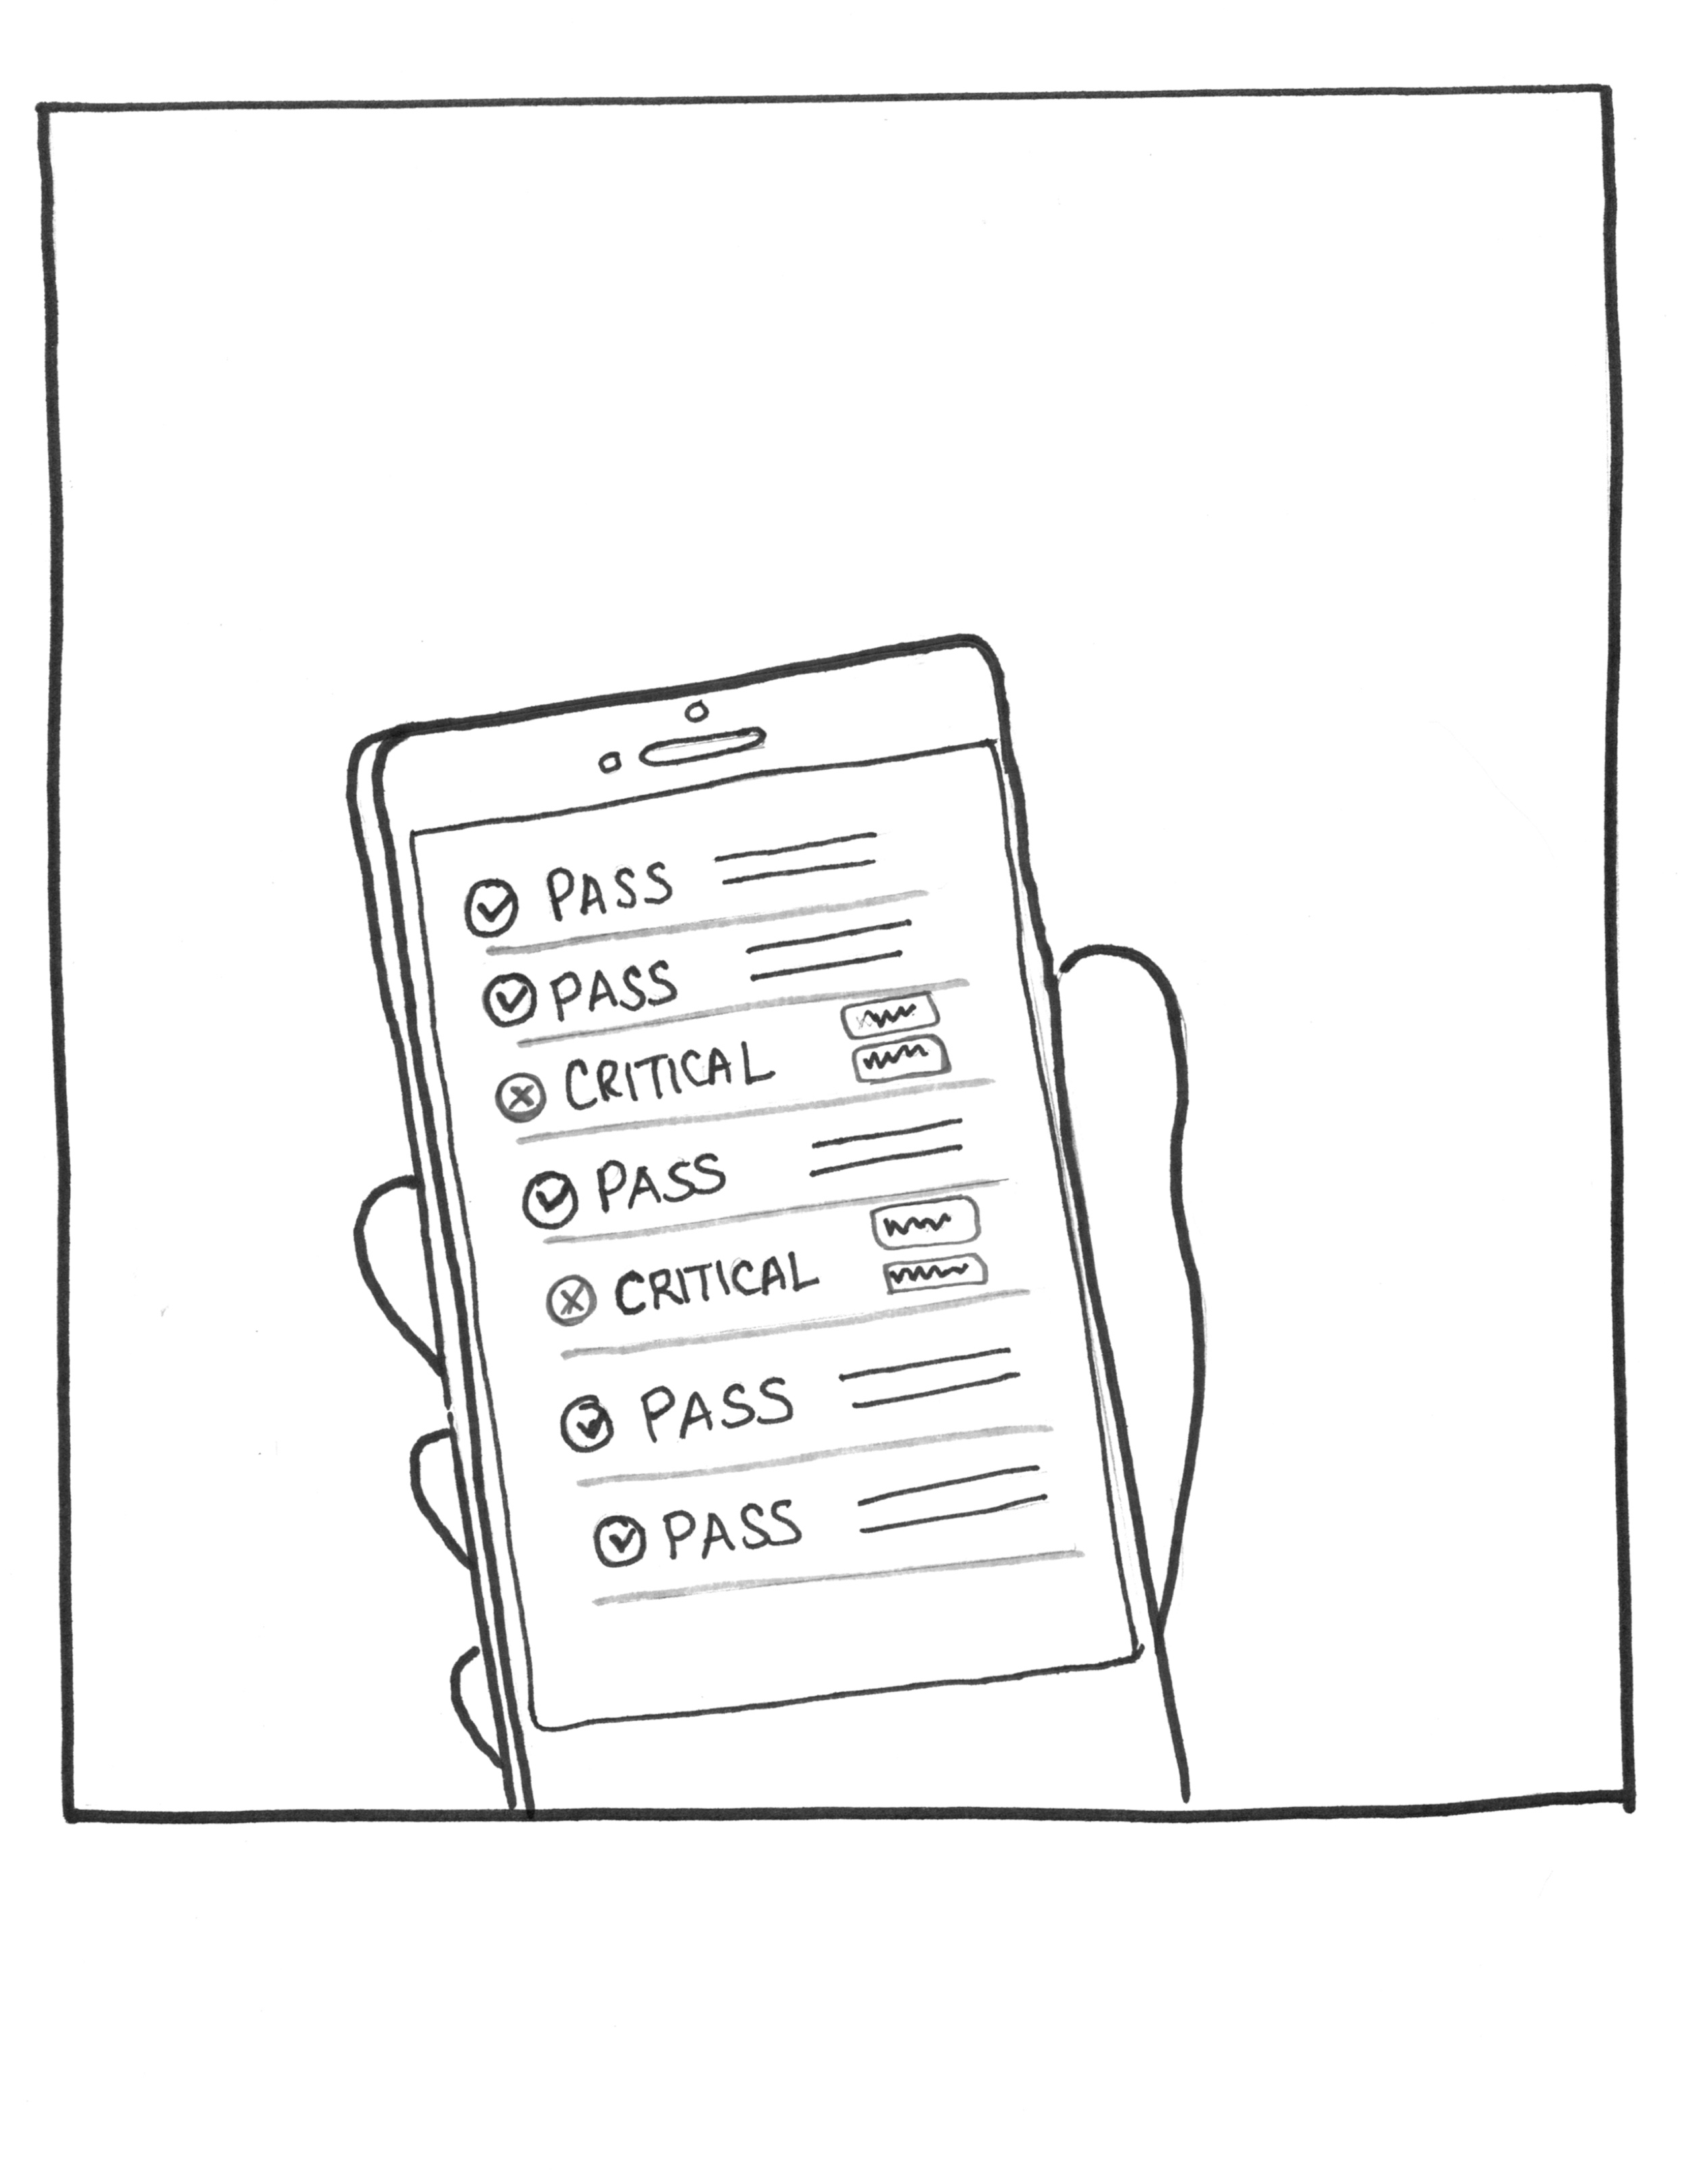 PASS
PASS
CRITICAL
PASS
CRITICAL
PASS
PASS